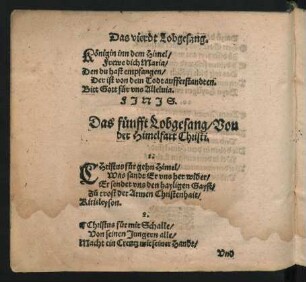 Das vierdt Lobgesang.
Königin inn dem Himel/
Frewe dich Maria/
Den du hast empfangen/
Der ist von dem Todt aufferstanden.
Bitt Gott für vns Alleluia.
FINIS.
Das fünfft Lobgesang/ Von
der Himelfart Christi.
1.
CHristus fur gehn Himel/
Was sandt Er vns her wider/
Er sendet vns den hayligen Gayst/
Zů trost der Armen Christenhait/
Kirieleyson.
2.
Christus für mit Schalle/
Von seinen Jungern alle/
Macht ein Creutz mit seiner Handt/
Vnd